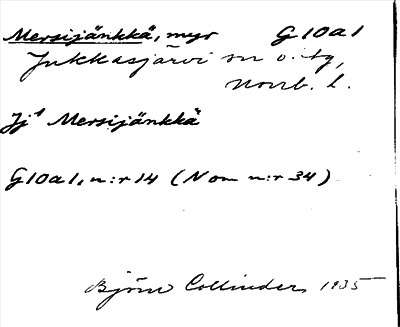 Mersijänkkä, myr G10a1
Jukkasjärvi sn o. tg,
Norrb. l.
Jj¹ Mersijänkkä
G10a1, n:r 14 (N om n:r 34)
Björn Collinder 1935